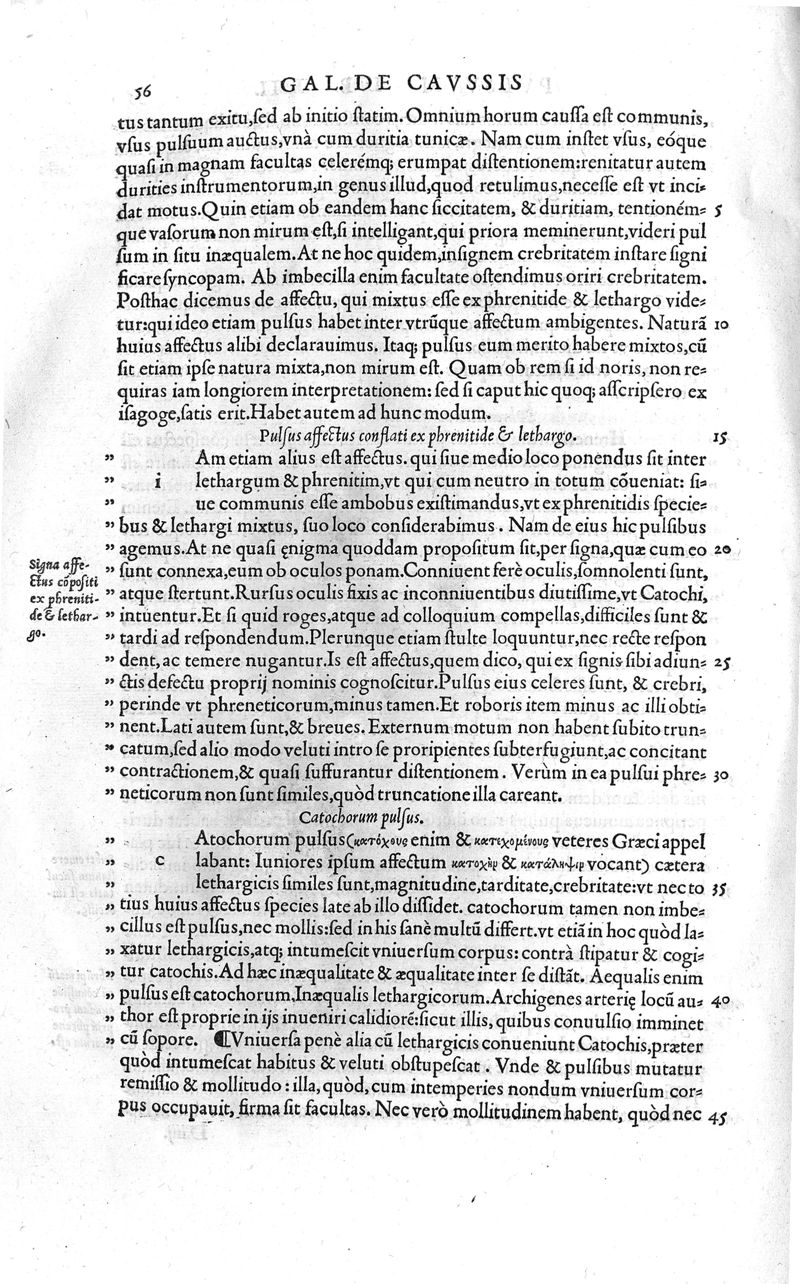 56 GAL. DE CAVSSIS
tus tantum exitu,ſed ab initio ſtatim. Omnium horum cauſſa eſt communis,
vſus pulſuum auctus,vnà cum duritia tunicæ. Nam cum inſtet vſus, eóque
quaſi in magnam facultas celerémq; erumpat diſtentionem:renitatur autem
durities inſtrumentorum,in genus illud,quod retulimus,neceſſe eſt vt inci-
dat motus.Quin etiam ob eandem hanc ſiccitatem, & duritiam, tentioném- 5
que vaſorum non mirum eſt,ſi intelligant,qui priora meminerunt,videri pul
ſum in ſitu inæqualem.At ne hoc quidem,inſignem crebritatem inſtare ſigni
ficare ſyncopam. Ab imbecilla enim facultate oſtendimus oriri crebritatem.
Poſthac dicemus de affectu, qui mixtus eſſe ex phrenitide & lethargo vide-
tur:qui ideo etiam pulſus habet inter vtrũque affectum ambigentes. Naturã 10
huius affectus alibi declarauimus. Itaq; pulſus eum merito habere mixtos,cũ
ſit etiam ipſe natura mixta,non mirum eſt. Quam ob rem ſi id noris, non re-
quiras iam longiorem interpretationem: ſed ſi caput hic quoq; aſſcripſero ex
iſagoge,ſatis erit.Habet autem ad hunc modum.
Pulſus affectus conflati ex phrenitide & lethargo. 15
” Am etiam alius eſt affectus. qui ſiue medio loco ponendus ſit inter
” i lethargum & phrenitim,vt qui cum neutro in totum cõueniat: ſi-
” ue communis eſſe ambobus exiſtimandus,vt ex phrenitidis ſpecie-
” bus & lethargi mixtus, ſuo loco conſiderabimus. Nam de eius hic pulſibus
” agemus.At ne quaſi ęnigma quoddam propoſitum ſit,per ſigna,quæ cum eo 20
” ſunt connexa,eum ob oculos ponam.Conniuent ferè oculis,ſomnolenti ſunt,
” atque ſtertunt.Rurſus oculis fixis ac inconniuentibus diutiſſime,vt Catochi,
” intuentur.Et ſi quid roges,atque ad colloquium compellas,difficiles ſunt &
” tardi ad reſpondendum.Plerunque etiam ſtulte loquuntur,nec recte reſpon
” dent,ac temere nugantur.Is eſt affectus,quem dico, qui ex ſignis ſibi adiun- 25
” ctis defectu proprij nominis cognoſcitur.Pulſus eius celeres ſunt, & crebri,
” perinde vt phreneticorum,minus tamen.Et roboris item minus ac illi obti-
” nent.Lati autem ſunt,& breues. Externum motum non habent ſubito trun-
” catum,ſed alio modo veluti intro ſe proripientes ſubterfugiunt,ac concitant
” contractionem,& quaſi ſuffurantur diſtentionem. Verùm in ea pulſui phre- 30
” neticorum non ſunt ſimiles,quòd truncatione illa careant.
Signa affe-
ctus cõpoſiti
ex phreniti-
de & lethar-
go.
Catochorum pulſus.
” Atochorum pulſus(κατόχους enim & κατεχομένους veteres Græci appel
” c labant: Iuniores ipſum affectum κατοχὴν & κατάληψιν vocant) cætera
” lethargicis ſimiles ſunt,magnitudine,tarditate,crebritate:vt nec to 35
” tius huius affectus ſpecies late ab illo diſſidet. catochorum tamen non imbe-
” cillus eſt pulſus,nec mollis:ſed in his ſanè multũ differt.vt etiã in hoc quòd la-
” xatur lethargicis,atq; intumeſcit vniuerſum corpus: contrà ſtipatur & cogi-
” tur catochis.Ad hæc inæqualitate & æqualitate inter ſe diſtãt. Aequalis enim
” pulſus eſt catochorum,Inæqualis lethargicorum.Archigenes arterię locũ au- 40
” thor eſt proprie in ijs inueniri calidioré:ſicut illis, quibus conuulſio imminet
” cũ ſopore. ¶Vniuerſa penè alia cũ lethargicis conueniunt Catochis,præter
quòd intumeſcat habitus & veluti obſtupeſcat. Vnde & pulſibus mutatur
remiſſio & mollitudo: illa, quòd, cum intemperies nondum vniuerſum cor-
pus occupauit, firma ſit facultas. Nec verò mollitudinem habent, quòd nec 45